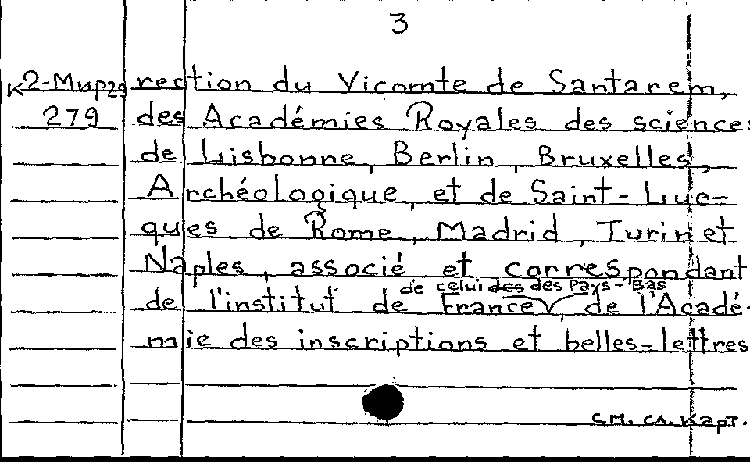 3
К2-Мир29 rection du Vicomte de Santarem,
279 des Académies Royales des sciences
de Lisbonne, Berlin, Bruxelles,
Archéologique, et de Saint-Luc-
ques de Rome, Madrid, Turin et
Naples, associé et correspondant
de celui des des Pays-Bas
de l'institut de France, de l'Acadé-
mie des inscriptions et belles-lettres
См. сл. карт.